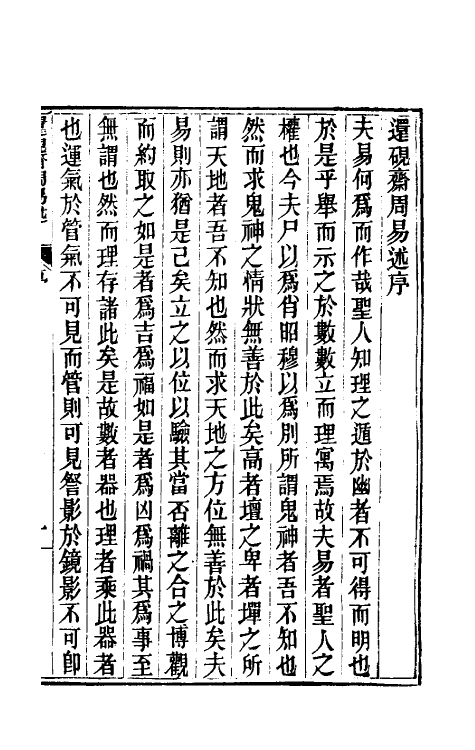 還硯齋周易述序
夫易何爲而作哉聖人知理之遁於幽者不可得而明也
於是乎舉而示之於數數立而理寓焉故夫易者聖人之
權也今夫尸以爲肖昭穆以爲別所謂鬼神者吾不知也
然而求鬼神之情狀無善於此矣高者壇之卑者墠之所
謂天地者吾不知也然而求天地之方位無善於此矣夫
易則亦猶是已矣立之以位以驗其當否離之合之博觀
而約取之如是者爲吉爲福如是者爲凶爲禍其爲事至
無謂也然而理存諸此矣是故數者器也理者乘此器者
也運氣於管氣不可見而管則可見詧影於鏡影不可卽
序
一